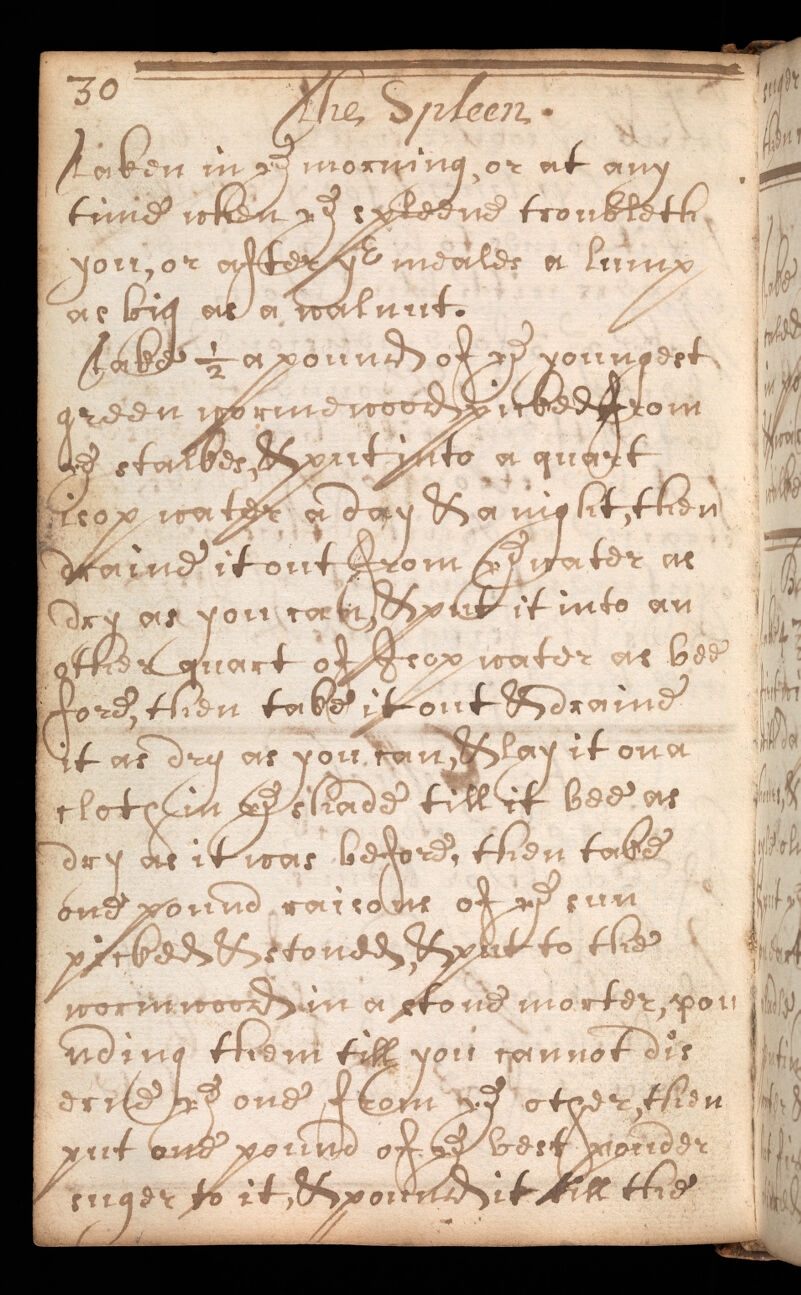 30
The Spleen.
Taken in ye morning, or at any
time when ye spleene troubleth
you, or after yr meales a lump
as big as a walnut.
Take ½ a pound of ye youngest
green wormewood picked from
ye stalkes, & put into a quart
isop water a day & a night, then
draine it out from ye water as
dry as you can, & put it into an
other quart of Isop water as bee
fore, then take it out & draine
it as dry as you can, & lay it on a
cloth in ye shade till it bee as
dry as it was before, then take
one pound raisons of ye sun
picked & stoned, & put to the
wormwood in a stone morter, pou
nding them till you cannot dis
erne ye one from ye other, then
put one pound of ye best pouder
suger to it, & pound it till the